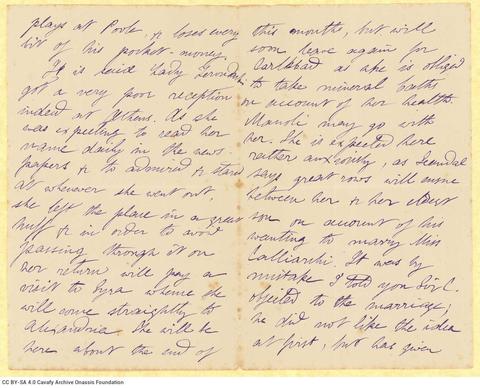 plays at Pools, & loses every
bit of his pocket-money.
It is said Lady Zervudachi
got a very poor reception
indeed at Athens. As she
was expecting to read her
name daily in the news-
papers & to admired & stared
at whenever she went out,
she left the place in a great
huff & in order to avoid
passing through it on
her return will pay a
visit to Syra whence she
will come straightly to
Alexandria. She will be
here about the end of
this month, but will
soon leave again for
Carlsbad as she is obliged
to take mineral baths
on account of her health.
Manoli may go with
her. She is expected here
rather anxiously, as Scandal
says great rows will ensue
between her & her eldest
son on account of his
wanting to marry Miss
Calliarhi. It was by
mistake I told you Sir C.
objected to the marriage;
he did not like the idea
at first, but has given
CC BY-SA 4.0 Cavafy Archive Onassis Foundation